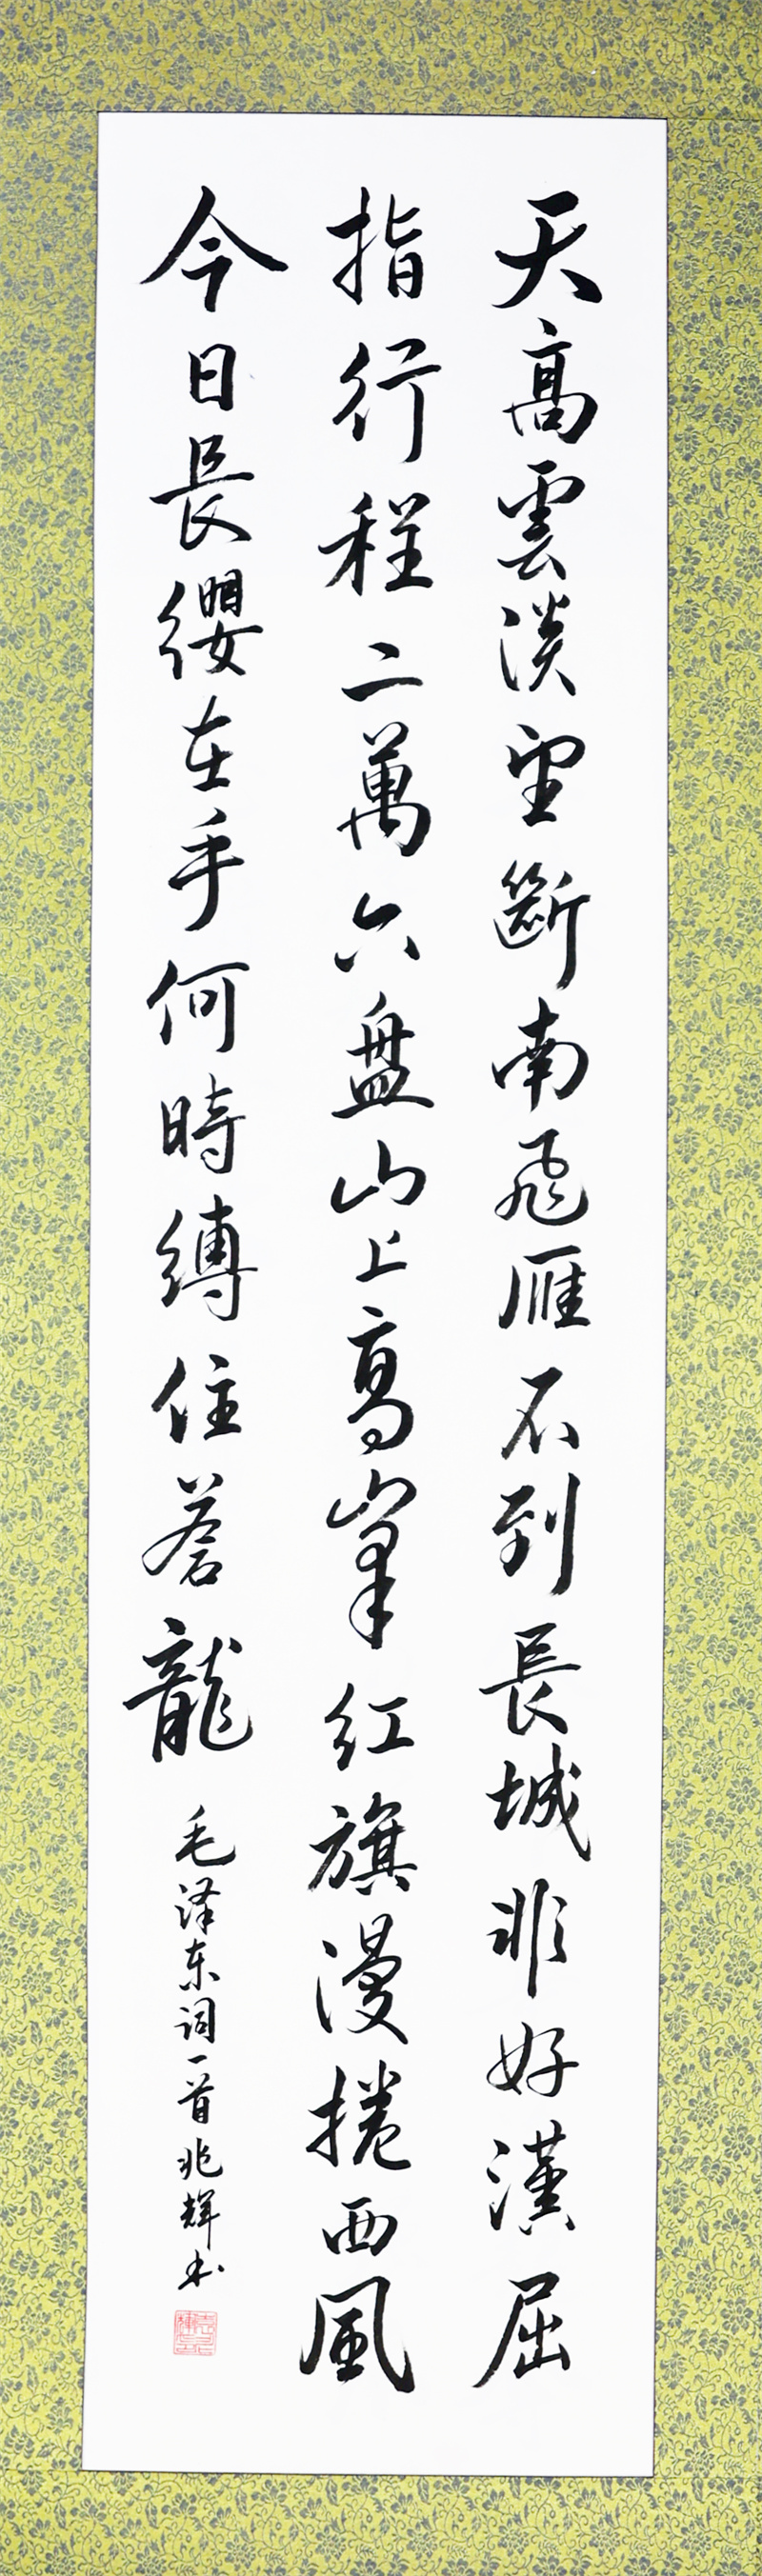 天高雲淡望斷南飛雁不到長城非好漢屈
指行程二萬六盘山上高峯红旗漫捲西風
今日長纓在手何時縛住蒼龍
毛泽东词一首兆輝书